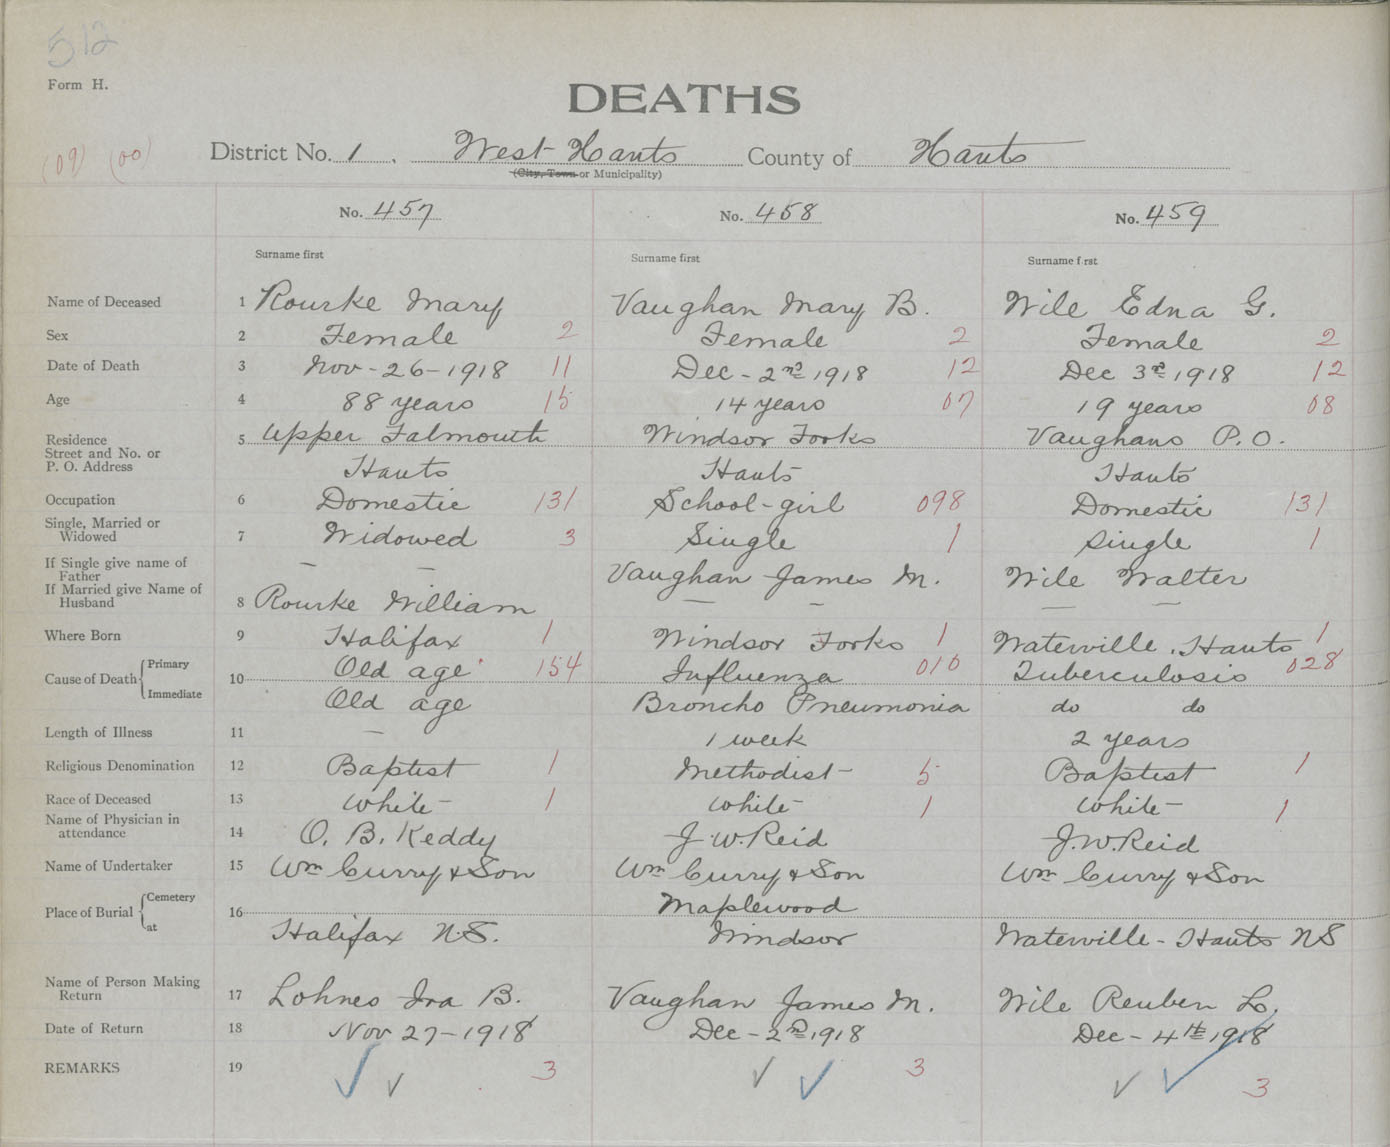 512
Form H.
DEATHS
(09) (00)
District No. 1. West Hants County of Hants
(City, Town or Municipality)
No. 457 No. 458 No. 459
Surname first Surname first Surname first
Name of Deceased 1 Rourke Mary Vaughan Mary B. Wile Edna G.
Sex 2 Female 2 Female 2 Female 2
Date of Death 3 Nov-26-1918 11 Dec-2nd 1918 12 Dec 3rd 1918 12
Age 4 88 years 15 14 years 07 19 years 08
Residence
Street and No. or 5 Upper Falmouth Windsor Forks Vaughans P.O.
P. O. Address Hants Hants Hants
Occupation 6 Domestic 131 School-girl 098 Domestic 131
Single, Married or
Widowed 7 Widowed 3 Single 1 Single 1
If Single give name of
Father — — Vaughan James M. Wile Walter
If Married give Name of
Husband 8 Rourke William — — — —
Where Born 9 Halifax 1 Windsor Forks 1 Waterville, Hants 1
Cause of Death Primary 10 Old age 154 Influenza 010 Tuberculosis 028
Immediate Old age Broncho Pneumonia do do
Length of Illness 11 — 1 week 2 years
Religious Denomination 12 Baptist 1 Methodist 5 Baptist 1
Race of Deceased 13 White 1 White 1 White 1
Name of Physician in
attendance 14 O. B. Keddy J. W. Reid J. W. Reid
Name of Undertaker 15 Wm Curry & Son Wm Curry & Son Wm Curry & Son
Place of Burial Cemetery 16 Maplewood
at Halifax N.S. Windsor Waterville-Hants NS
Name of Person Making
Return 17 Lohnes Ira B. Vaughan James M. Wile Reuben L.
Date of Return 18 Nov 27-1918 Dec-2nd 1918 Dec-4th 1918
REMARKS 19 3 3 3